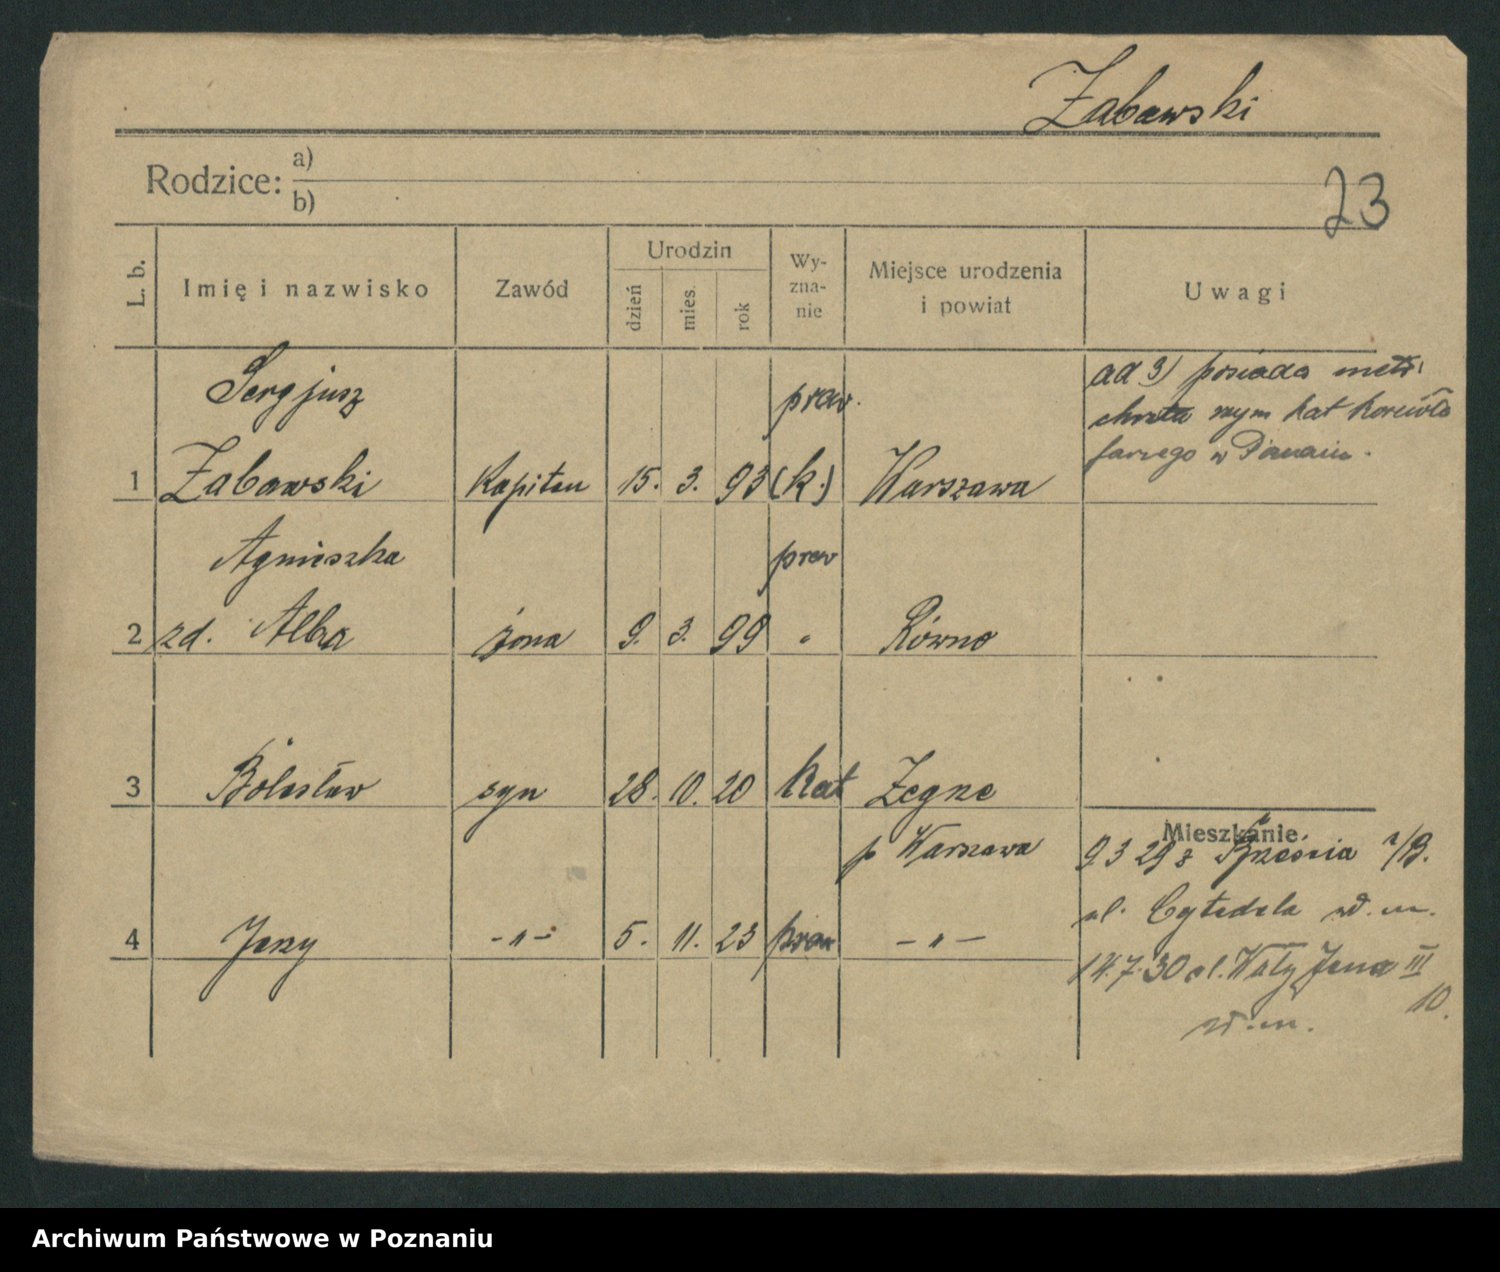 Żabawski
Rodzice: a)
b)
23
L. b.
Imię i nazwisko
Zawód
Urodzin
dzień
mies.
rok
Wy-
zna-
nie
Miejsce urodzenia
i powiat
Uwagi
Sergjusz praw.
1 Żabawski Kapitan 15. 3. 93 (k.) Warszawa
ad 3) posiada metr.
chrztu rzym kat
farnego w
Agnieszka praw
2 zd. Alba żona 9. 3. 99 " Równo
3 Bolesław syn 28. 10. 20 Kat Zegrze
p Warszawa
4 Jerzy -"- 5. 11. 23 praw -"-
Mieszkanie.
9 3 29 z Brześcia n/B.
ul. Cytadela w. m.
14.7.30 ul. Wały Jana III
10.
w. m.
Archiwum Państwowe w Poznaniu